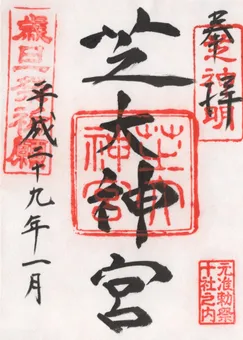 奉拝
芝神明
芝大神宮
芝大神宮
元准勅祭
十社之内
平成二十九年一月